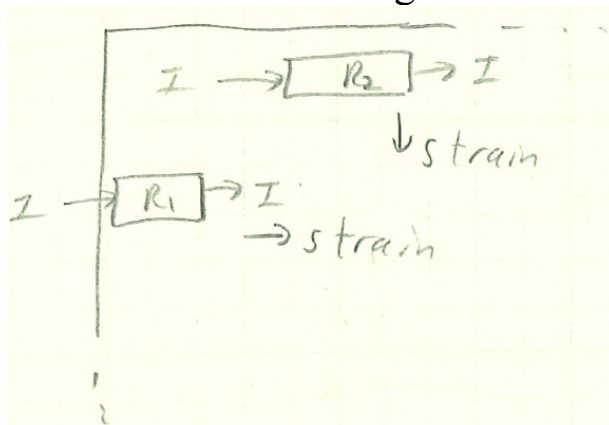 I → R₂ → I
↓ strain
I → R₁ → I
→ strain